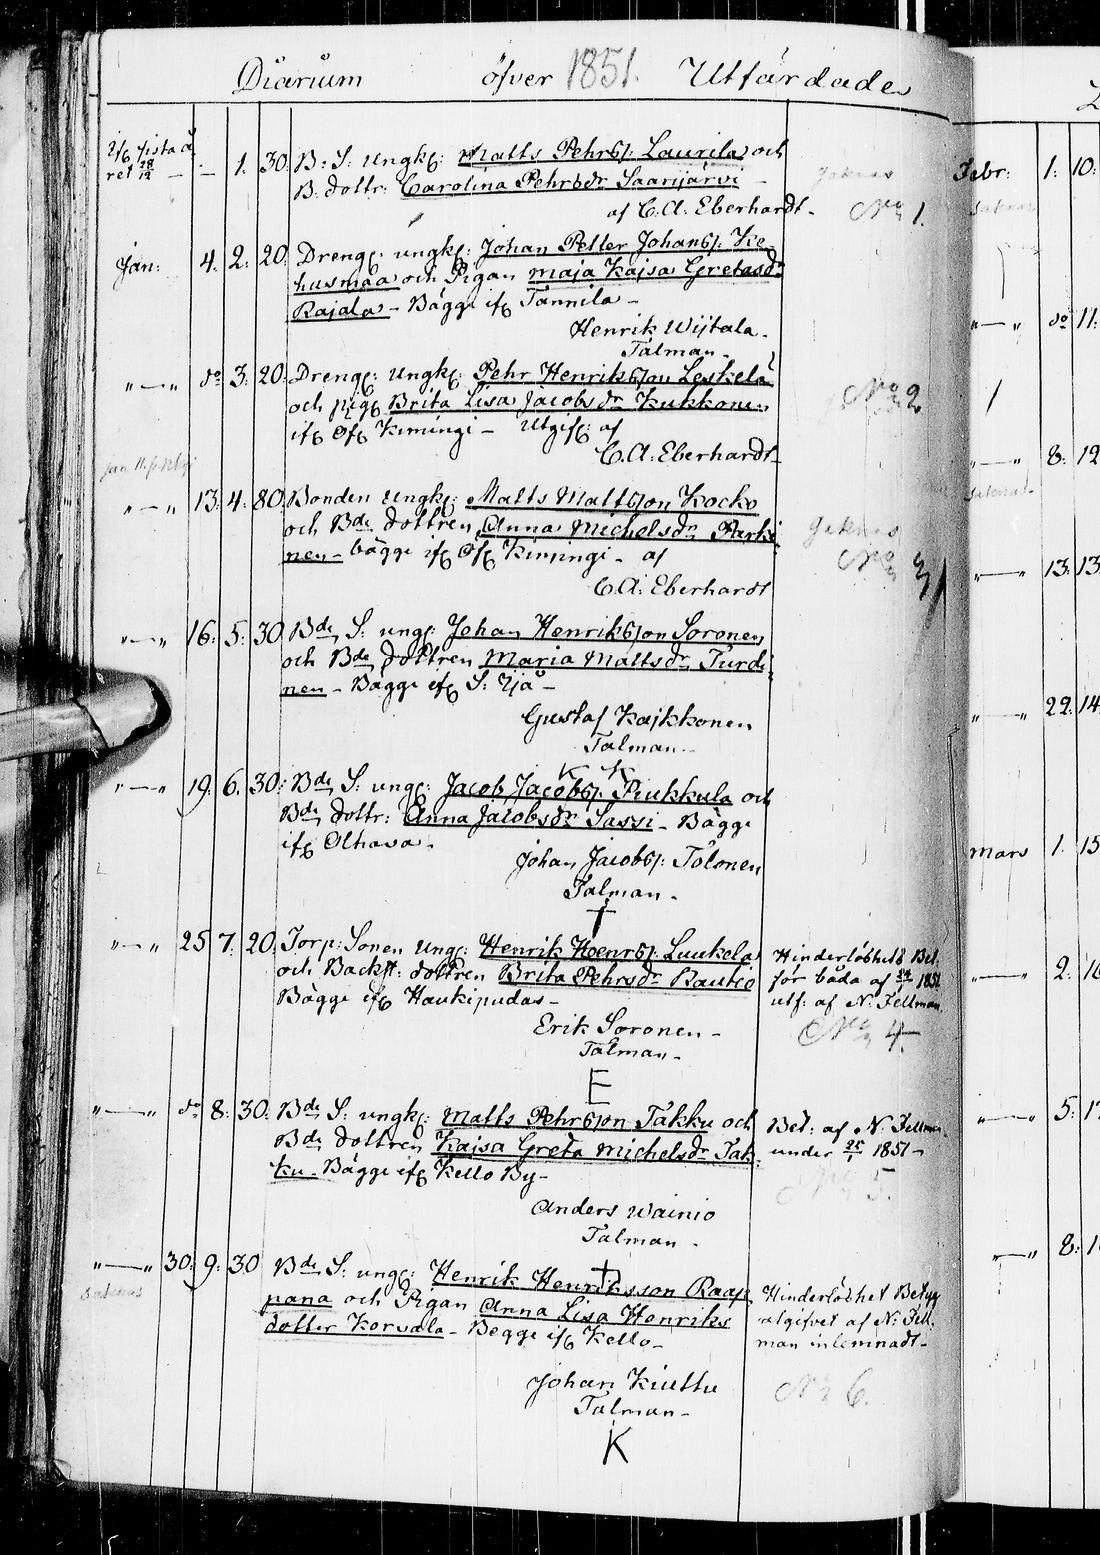 Diarium öfver 1851. Utfärdade
ifr sista å
ret 28/12 — — 1. 30. B: S: Ungk: Matts Pehrsſ: Laurila och
B: dottr: Carolina Pehrsdr Saarijärvi —
af C. A. Eberhardt.
No 1.
Jan: 4. 2. 20. Dreng: ungk: Johan Petter Johansſ: Ke-
husmaa och Pigan Maja Kajsa Gretasdr
Rajala — Bägge ifr Tannila —
Henrik Wijtala.
Talman.
"—" do 3. 20. Dreng: Ungk: Pehr Henriksson Leskelä
och pig: Brita Lisa Jacobsdr Kukkonen
ifr Öfr Kimingi — Utgif: af
No 2
C. A. Eberhardt
"—" 13. 4. 80. Bonden Ungk: Matts Mattsson Kocko
och Bde dottren Anna Michelsdr Parki-
nen — bägge ifr Öfr Kimingi — af
No 3
C. A. Eberhardt
"—" 16. 5. 30 Bde S: ung: Johan Henriksson Soronen
och Bde dottren Maria Mattsdr Turdi-
nen — Bägge ifr S: Ijå —
Gustaf Kajkkonen
Talman.
"—" 19. 6. 30. Bde S: ung: Jacob Jacobsſ: Piukkula och
Bde dottr: Anna Jacobsdr Sassi — Bägge
ifr Olhava.
Johan Jacobsſ: Tolonen
Talman.
"—" 25 7. 20. Torp: Sonen Ung: Henrik Henrsſ: Luukela
och Backst: dottren Brita Pehrsdr Rautio
Bägge ifr Haukipudas —
Hinderlöshets Bet.
för båda af 24/1 1851
utf: af N. Fellman.
No 4.
Erik Soronen —
Talman —
E
"—" do 8. 30. Bde S: ungk: Matts Pehrsson Takku och
Bde dottren Kajsa Greta Michelsdr Tak-
ku — Bägge ifr Kello By —
Bet: af N. Fellman
under 25/1 1851 —
No 5.
Anders Wainio
Talman.
"—" 30. 9. 30 Bde S: ung: Henrik Henriksson Raap-
pana och Pigan Anna Lisa Henriks
dotter Korvala — Begge ifr Kello —
Hinderlöshet Betyg
utgifvet af N. Fell-
man inlemnadt —
No 6.
Johan Kiuttu
Talman —
K
Febr: 1. 10.
"—" do 11.
"—" 8. 12
"—" 13. 13.
"—" 22. 14.
Mars 1. 15
"—" 2. 16
"—" 5. 17
"—" 8. 1